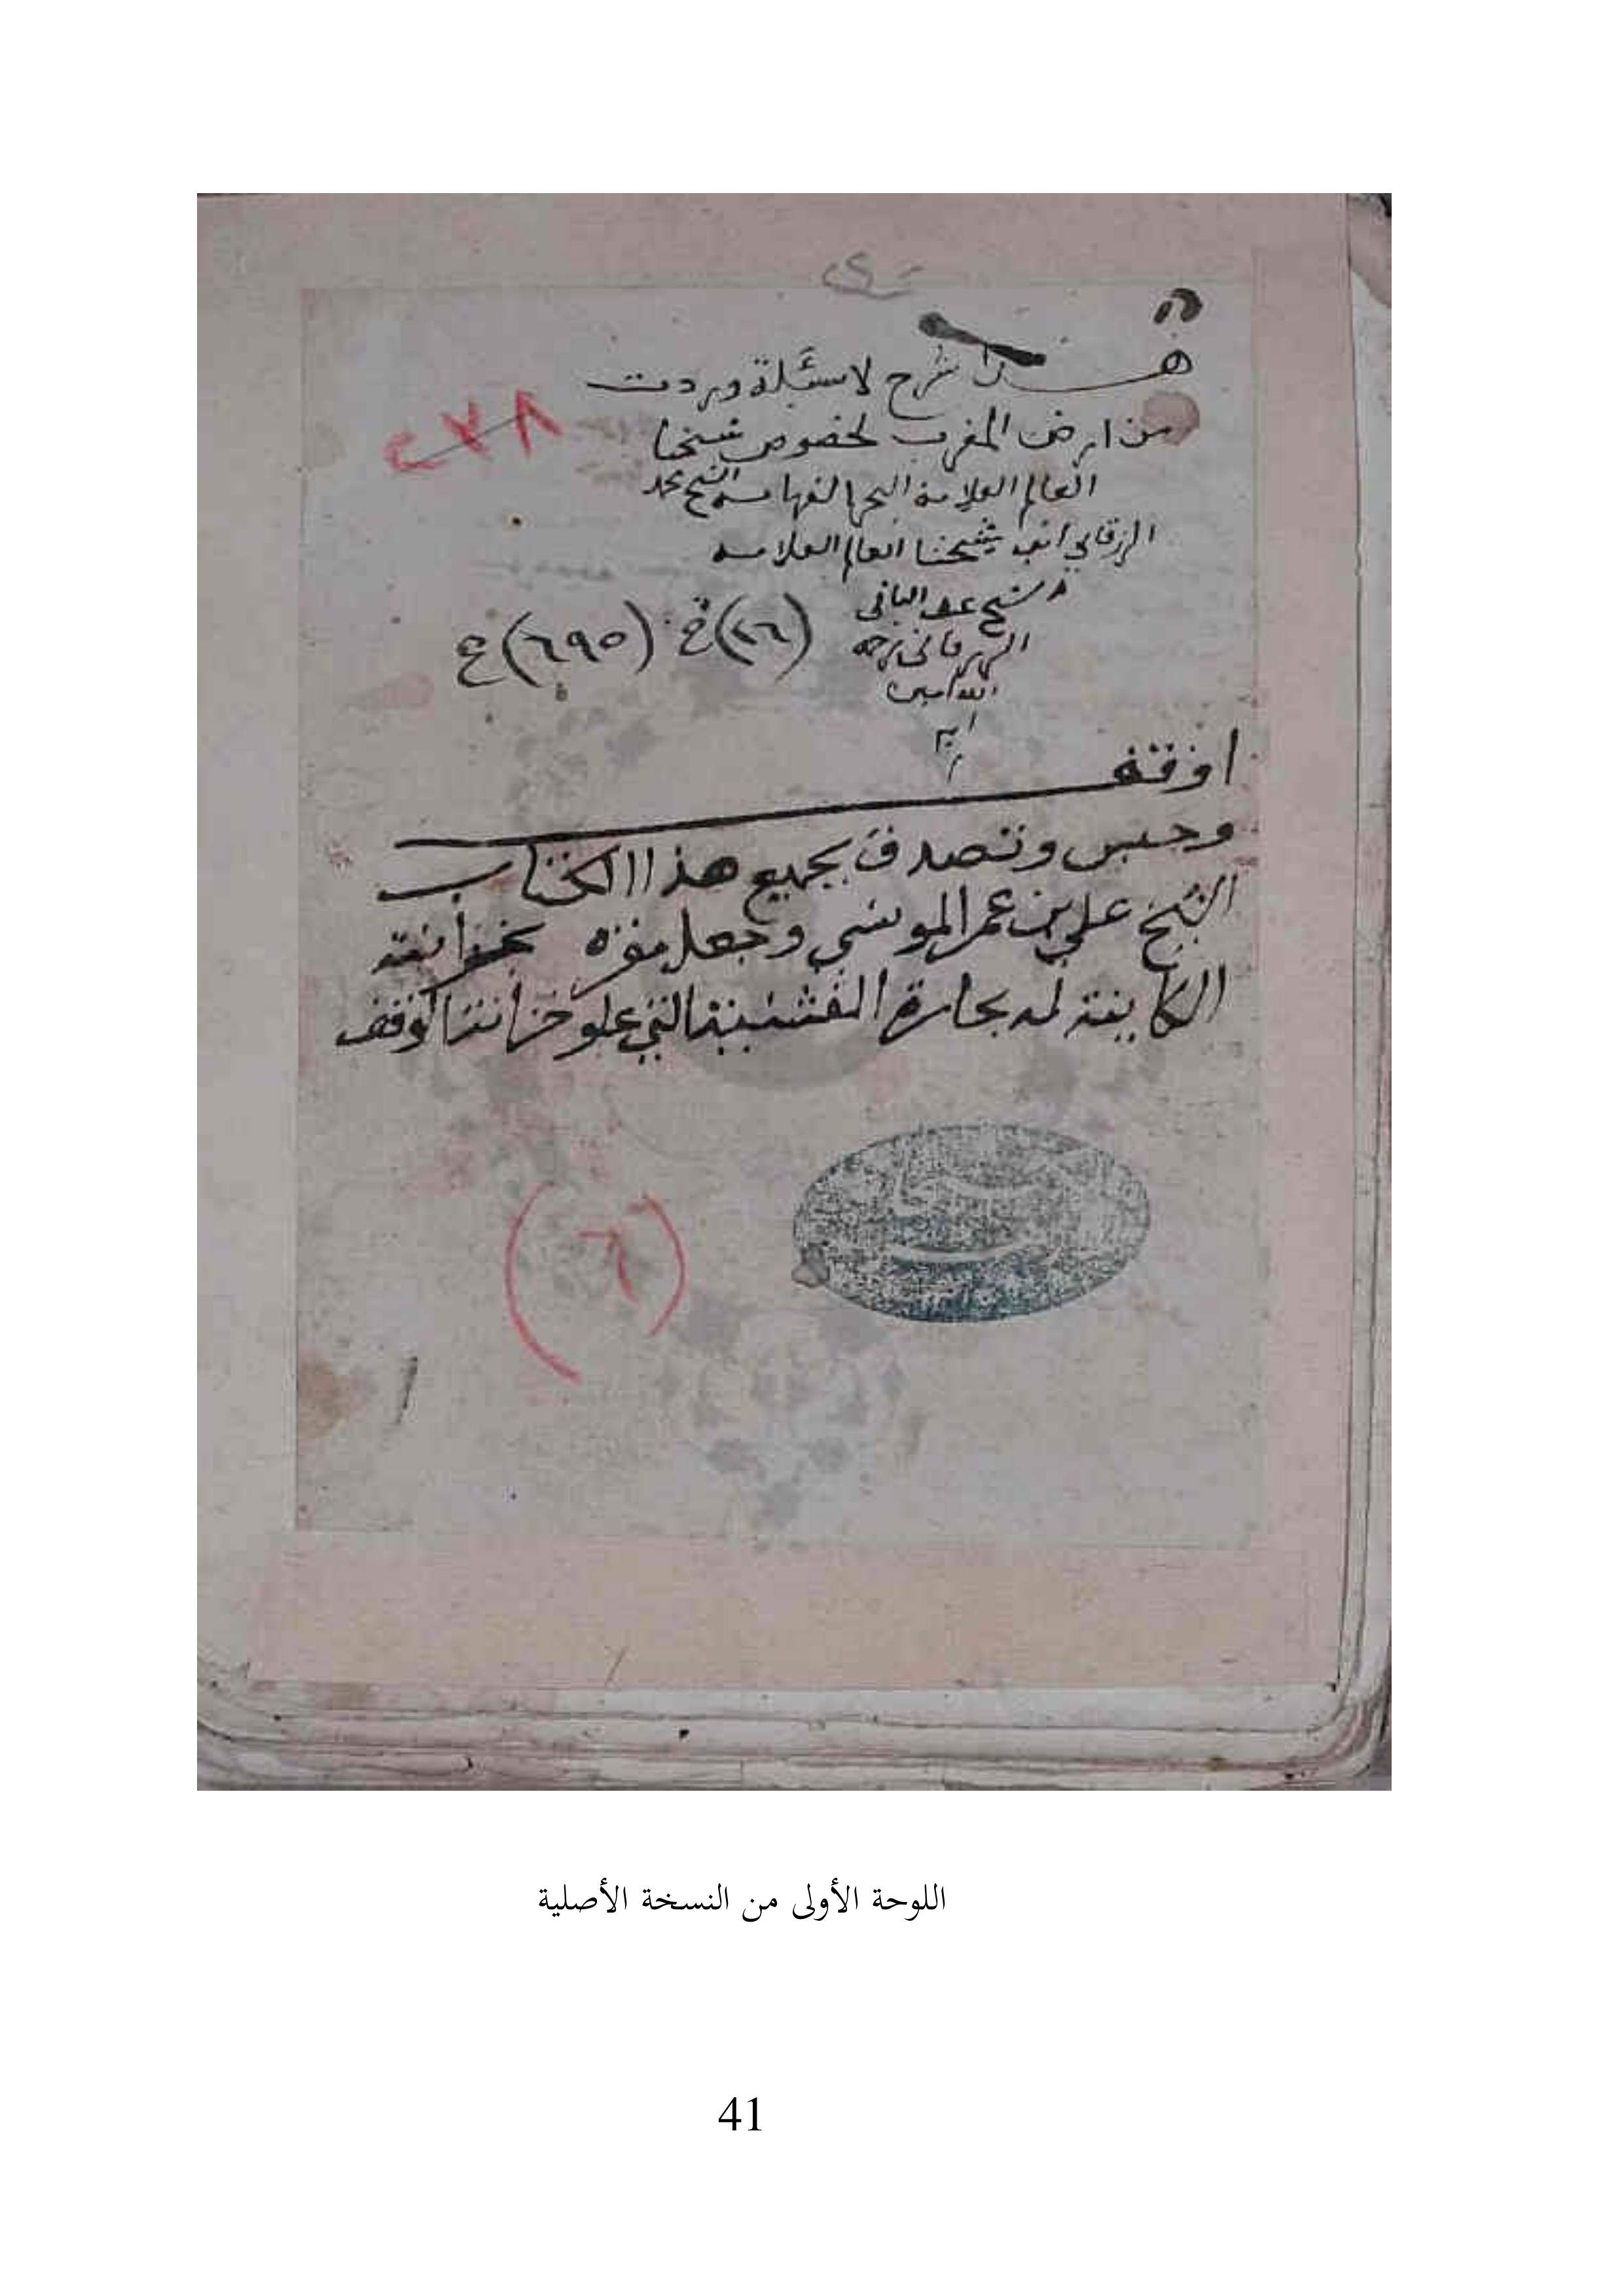 هذا شرح لاسئلة وردت
من ارض المغرب لخصوص شيخنا
العالم العلامة البحر الفهامه الشيخ محمد
الزرقاني ابن شيخنا العالم العلامه
الشيخ عبد الباقي
الزرقاني رحمه
الله امين
(٢٦) خ (٦٩٥) ع
اوقف
وحبس وتصدق بجميع هذا الكتاب
الشيخ علي بن عمر الموسي وجعل مقره بخزانته
الكاينة له بحارة
اوقف
(٦)
اللوحة الأولى من النسخة الأصلية
41